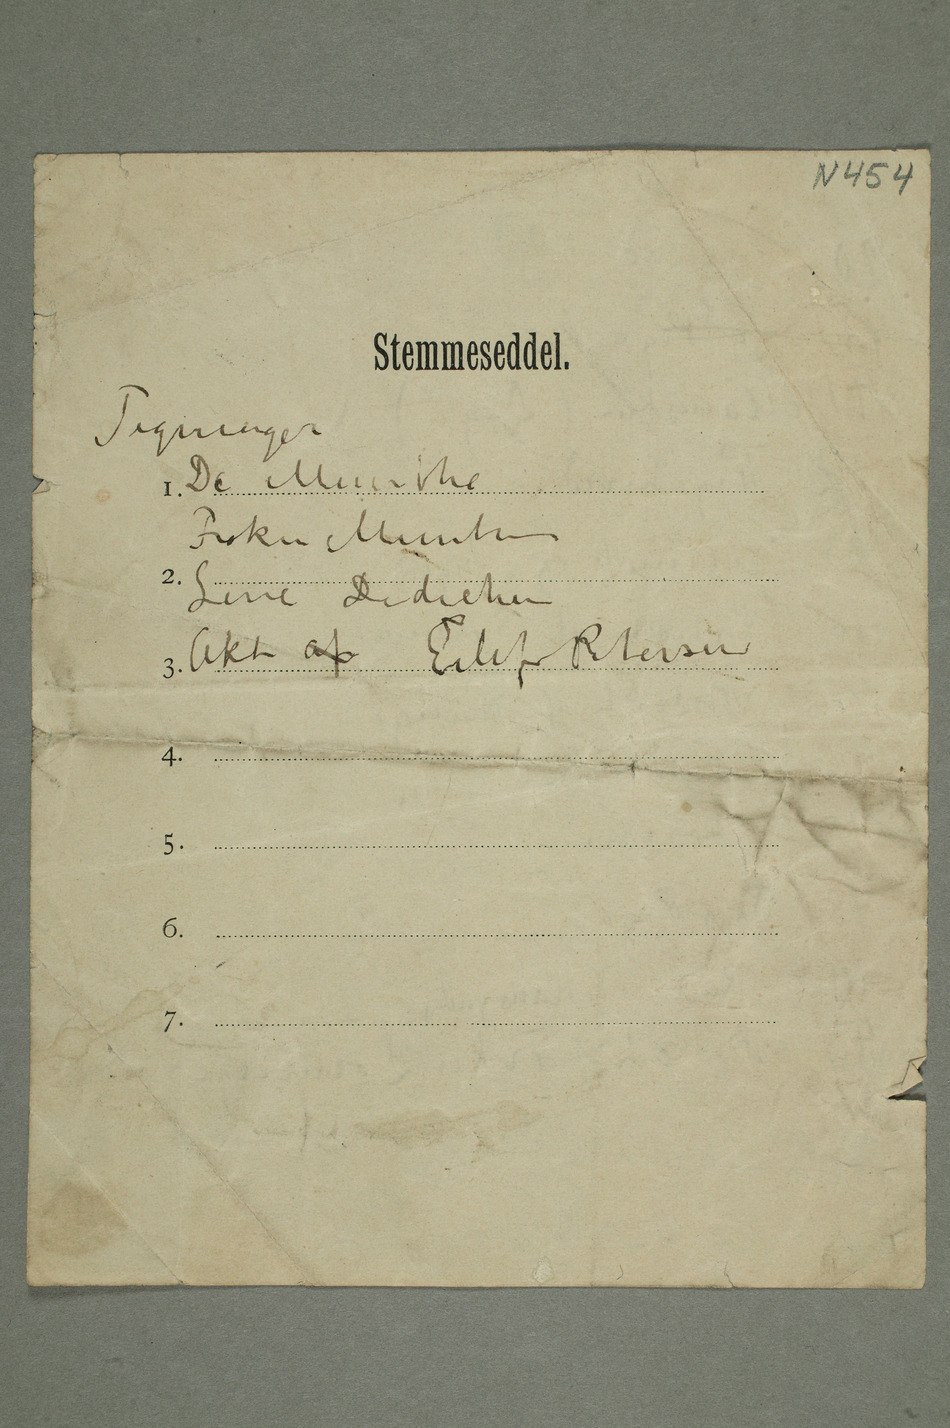 N454
Stemmeseddel.
Tegninger
1. De Munthe
Frøken Munthe
2.
Line Dedichen
3. Akt af Eilif Petersen
4.
5.
6.
7.